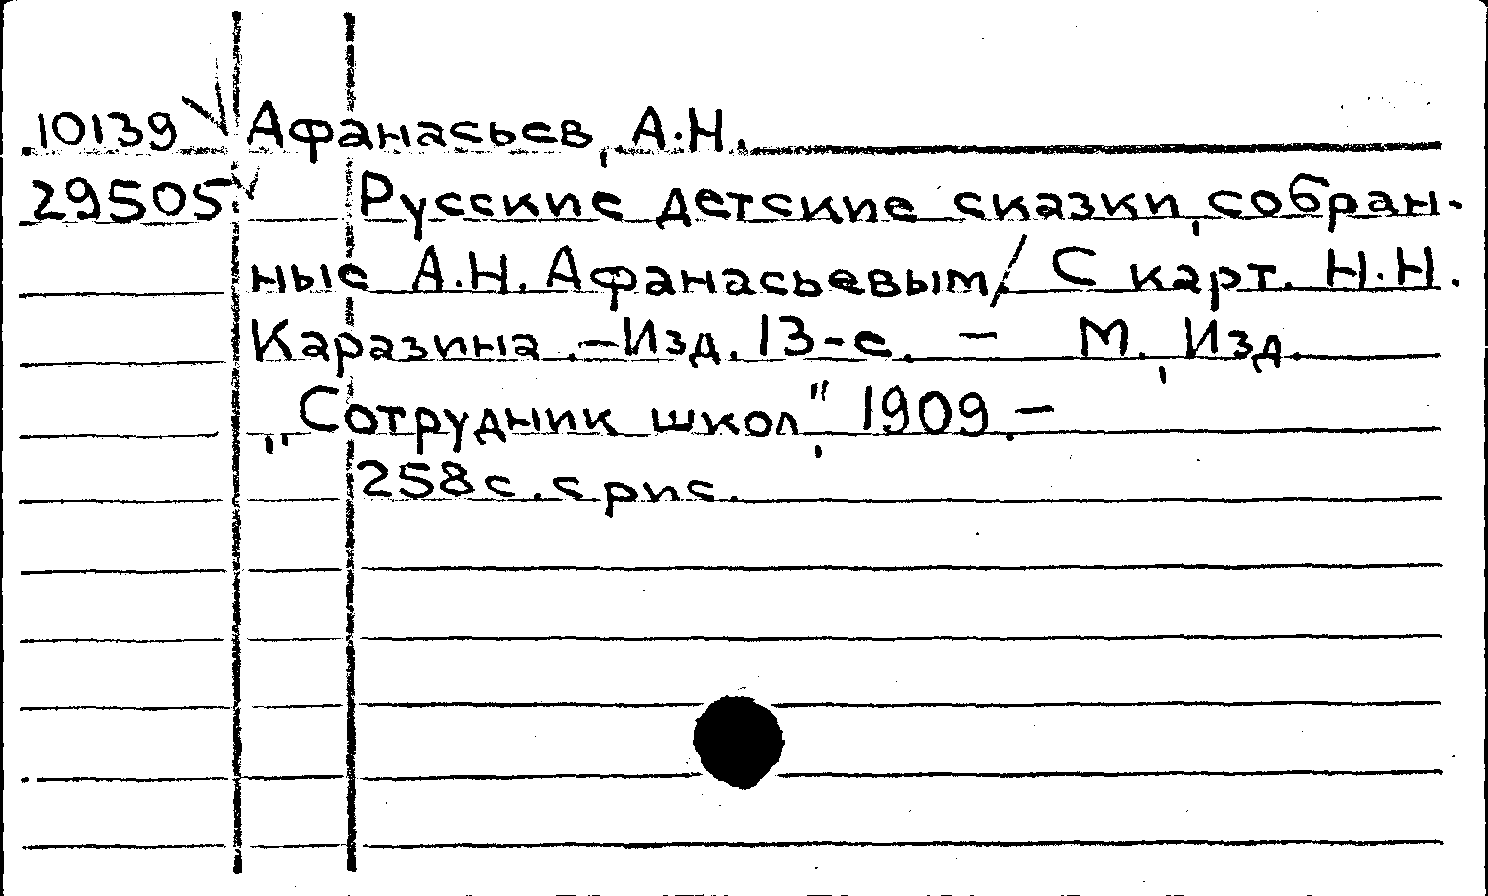 10139 Афанасьев, А.Н.
29505 Русские детские сказки, собран-
ные А.Н. Афанасьевым / С карт. Н.Н.
Каразина. - Изд. 13-е. - М., Изд.
„Сотрудник школ", 1909. -
258 с. с рис.